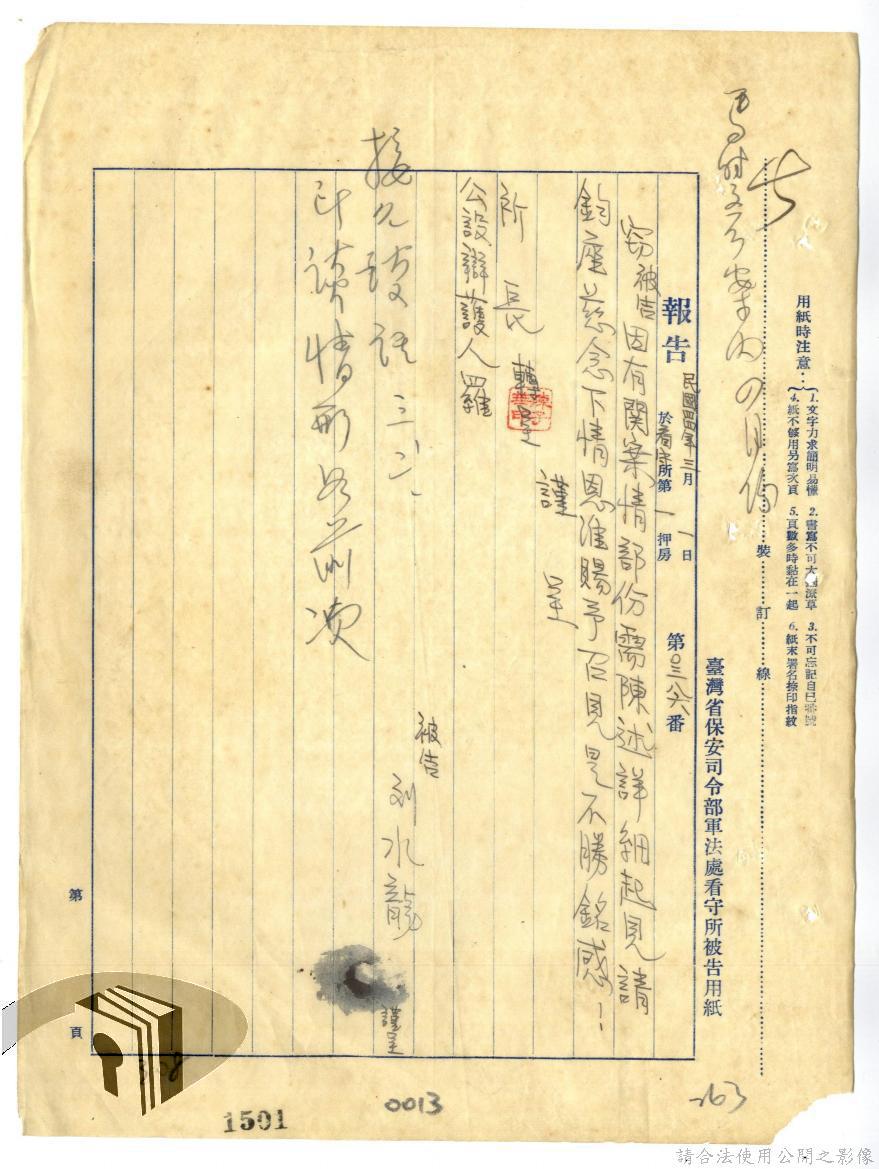 用紙時注意：
1.文字力求簡明易懂　2.書寫不可太潦草　3.不可忘記自己番號
4.紙不够用另寫次頁　5.頁數多時黏在一起　6.紙末署名捺印指紋
裝訂線
臺灣省保安司令部軍法處看守所被告用紙
報告　民國四四年三月一日　於看守所第一押房　第〇三六番
竊被告因有關案情部份需陳述詳細起見請
鈞座慈念下情恩准賜予召見是不勝銘感！
謹呈
所長　轉呈
公設辯護人羅
被告　劉水龍　謹呈
接見談話三
談情形如前次
第　頁
308
1501
0013
263
請合法使用公開之影像